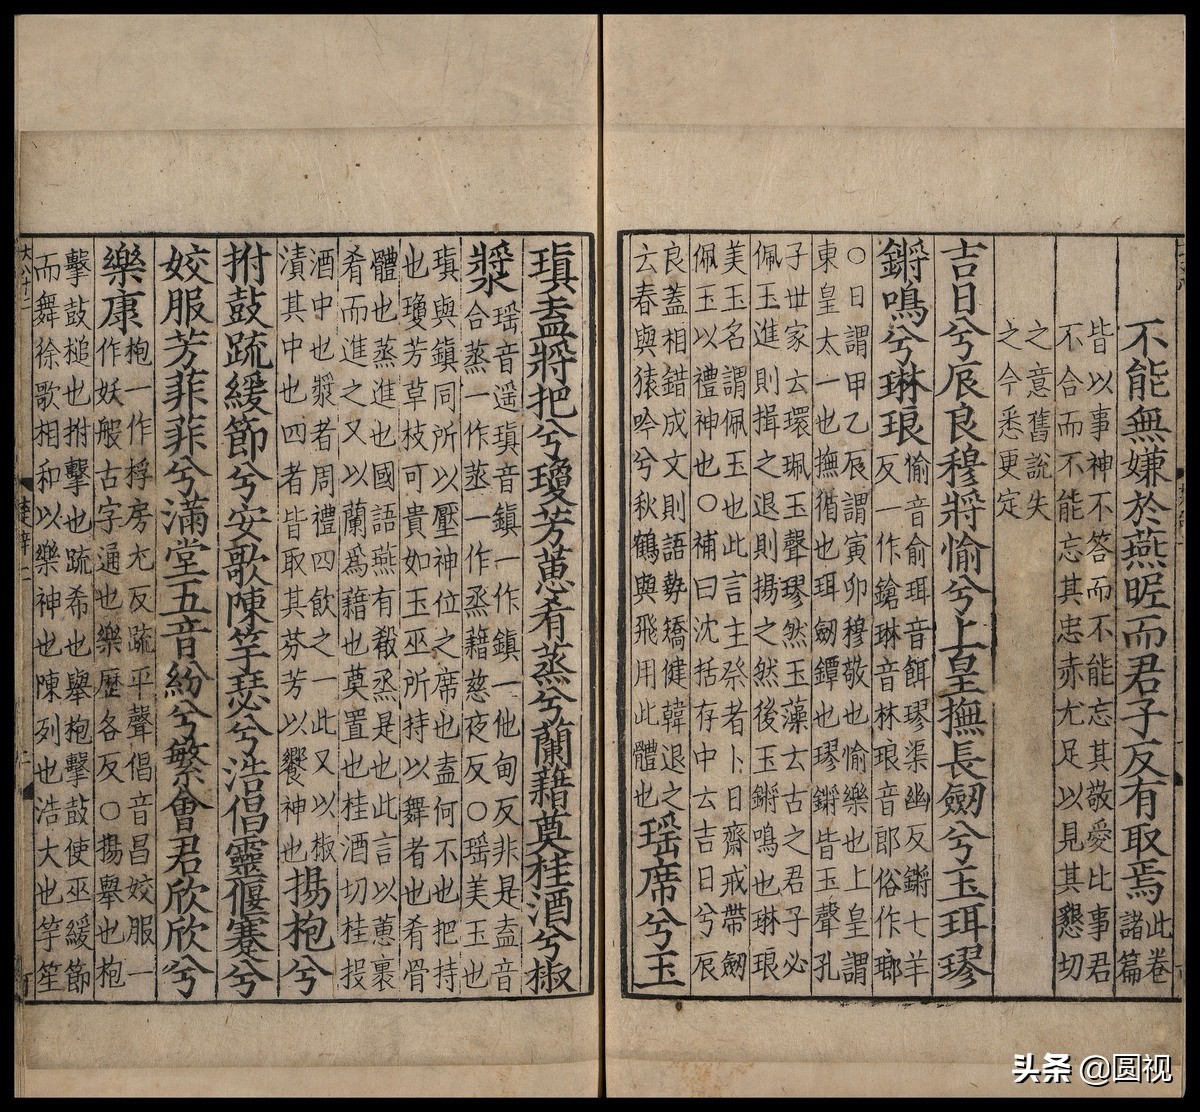 不能無嫌於燕昵而君子反有取焉
此卷
諸篇
皆以事神不答而不能忘其敬愛比事君
不合而不能忘其忠赤尤足以見其懇切
之意舊說失
之今悉更定
吉日兮辰良穆將愉兮上皇撫長劒兮玉珥璆
鏘鳴兮琳琅
愉音俞珥音餌璆渠幽反鏘七羊
反一作鎗琳音林琅音郎俗作瑯
〇日謂甲乙辰謂寅卯穆敬也愉樂也上皇謂
東皇太一也撫循也珥劒鐔也璆鏘皆玉聲孔
子世家云環珮玉聲璆然玉藻云古之君子必
佩玉進則揖之退則揚之然後玉鏘鳴也琳琅
美玉名謂佩玉也此言主祭者卜日齋戒帶劒
佩玉以禮神也〇補曰沈括存中云吉日兮辰
良蓋相錯成文則語勢矯健韓退之
云春與猿吟兮秋鶴與飛用此體也
瑶席兮玉
瑱盍將把兮瓊芳蕙肴蒸兮蘭藉奠桂酒兮椒
漿
瑶音遥瑱音鎮一作鎮一他甸反非是盍音
合蒸一作一作烝藉慈夜反〇瑶美玉也
瑱與鎮同所以壓神位之席也盍何不也把持
也瓊芳草枝可貴如玉巫所持以舞者也肴骨
體也蒸進也國語燕有殽烝是也此言以蕙裹
肴而進之又以蘭爲藉也奠置也桂酒切桂投
酒中也漿者周禮四飲之一此又以椒
漬其中也四者皆取其芬芳以饗神也
揚枹兮
拊鼓疏緩節兮安歌陳竽瑟兮浩倡靈偃蹇兮
姣服芳菲菲兮滿堂五音紛兮繁會君欣欣兮
樂康
枹一作桴房尤反疏平聲倡音昌姣服一
作妖般古字通也樂歷各反〇揚舉也枹
擊鼓槌也拊擊也疏希也舉枹擊鼓使巫緩節
而舞徐歌相和以樂神也陳列也浩大也竽笙
楚辭二
头条 @圆视